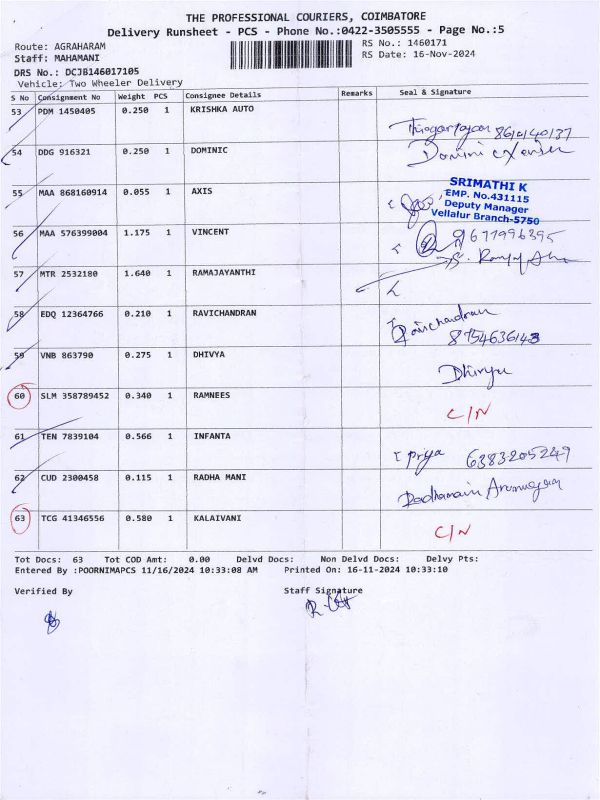 THE PROFESSIONAL COURIERS, COIMBATORE
Delivery Runsheet - PCS - Phone No.:0422-3505555 - Page No.:5
Route: AGRAHARAM RS No.: 1460171
Staff: MAHAMANI RS Date: 16-Nov-2024
DRS No.: DCJB146017105
Vehicle: Two Wheeler Delivery
S No Consignment No Weight PCS Consignee Details Remarks Seal & Signature
53 PDM 1450405 0.250 1 KRISHKA AUTO
8610140137
54 DDG 916321 0.250 1 DOMINIC
55 MAA 868160914 0.055 1 AXIS
SRIMATHI K
EMP. No.431115
Deputy Manager
Vellalur Branch-5750
56 MAA 576399004 1.175 1 VINCENT
9677996395
57 MTR 2532180 1.640 1 RAMAJAYANTHI
58 EDQ 12364766 0.210 1 RAVICHANDRAN
Ravichandran
8754636143
59 VNB 863790 0.275 1 DHIVYA
Dhivya
60 SLM 358789452 0.340 1 RAMNEES
C/N
61 TEN 7839104 0.566 1 INFANTA
Priya 6383205249
62 CUD 2300458 0.115 1 RADHA MANI
Radhamani Arumugam
63 TCG 41346556 0.580 1 KALAIVANI
C/N
Tot Docs: 63 Tot COD Amt: 0.00 Delvd Docs: Non Delvd Docs: Delvy Pts:
Entered By :POORNIMAPCS 11/16/2024 10:33:08 AM Printed On: 16-11-2024 10:33:10
Verified By Staff Signature